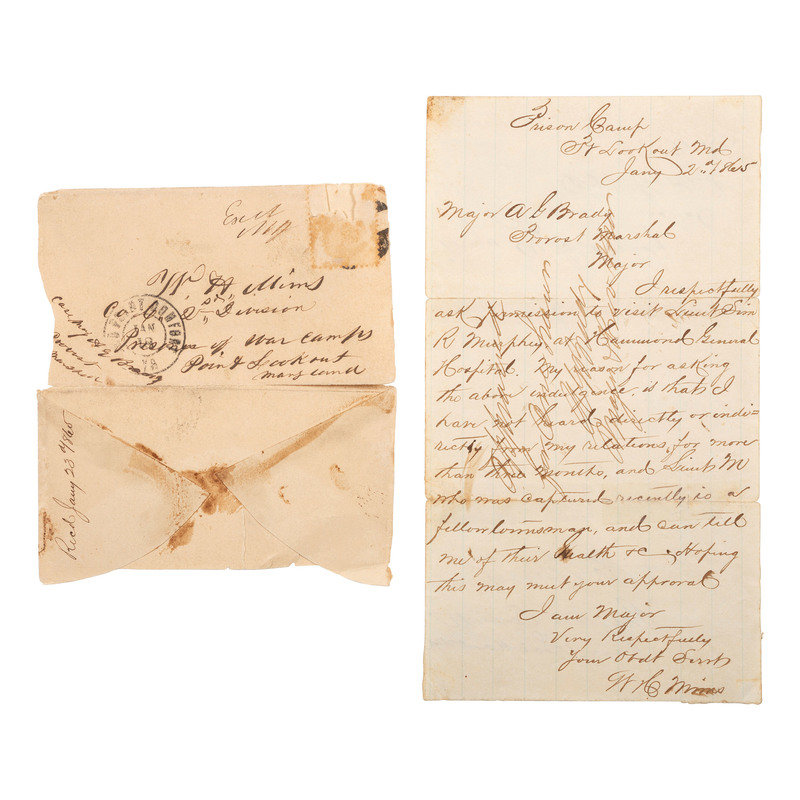 Exd
Wm H Mims
Co 2nd Division
Prisoner of War Camps
Point Lookout
Maryland
Care of A G Brady
Provost
Marshal
POINT LOOKOUT
JAN
Recd Jany 23d 1865
Prison Camp
Pt Lookout Md
Jany 2nd 1865
Major A G Brady
Provost Marshal
Major
I respectfully
ask permission to visit Lieut Sim
R Murphey at Hammond General
Hospital. My reason for asking
the above indulgence is that I
have not heard directly or indi=
rectly from my relations for more
than three months, and Lieut M
who was captured recently is a
fellow townsman, and can tell
me of their health &c. Hoping
this may meet your approval
I am Major
Very Respectfully
Your Obdt Servt
W H Mims